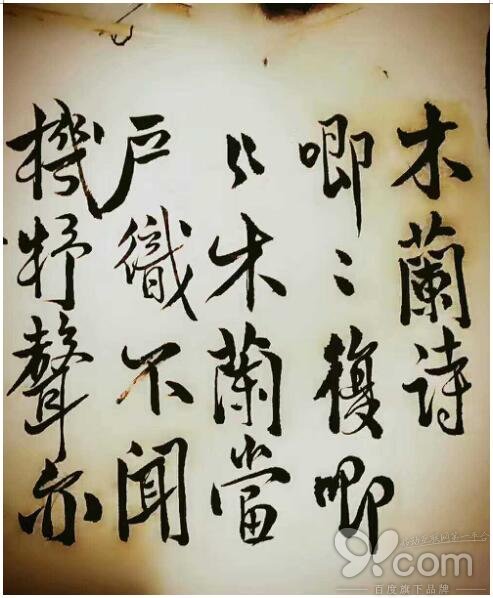 木蘭詩
唧〻復唧
〻木蘭當
戶織不聞
機杼聲亦
9!.com
百度旗下品牌